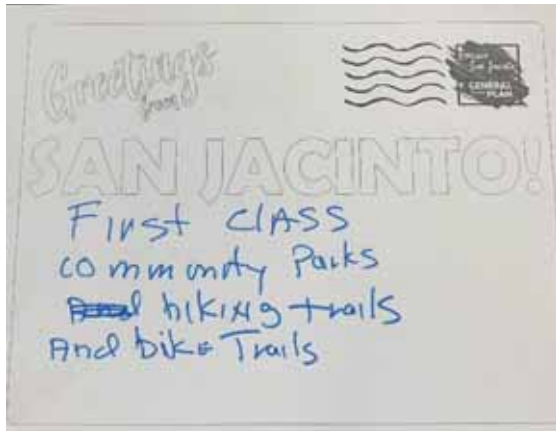 Greetings
from
SAN JACINTO!
GENERAL
PLAN
First CLASS
community Parks
hiking trails
And bike Trails